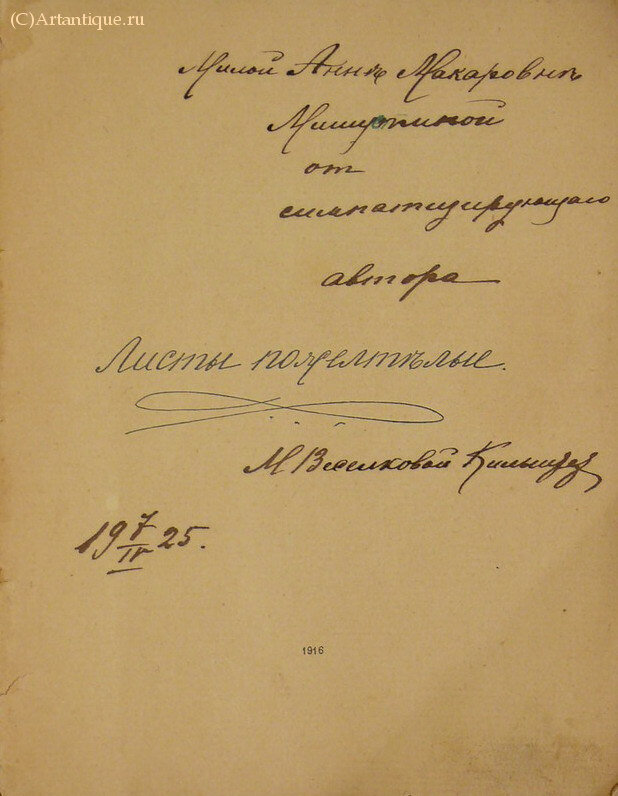 (C)Artantique.ru
Милой Аннѣ Макаровнѣ
от
симпатизирующаго
автора
Листы пожелтѣлые.
М Веселковой Кильштет
19 7/IV 25.
1916